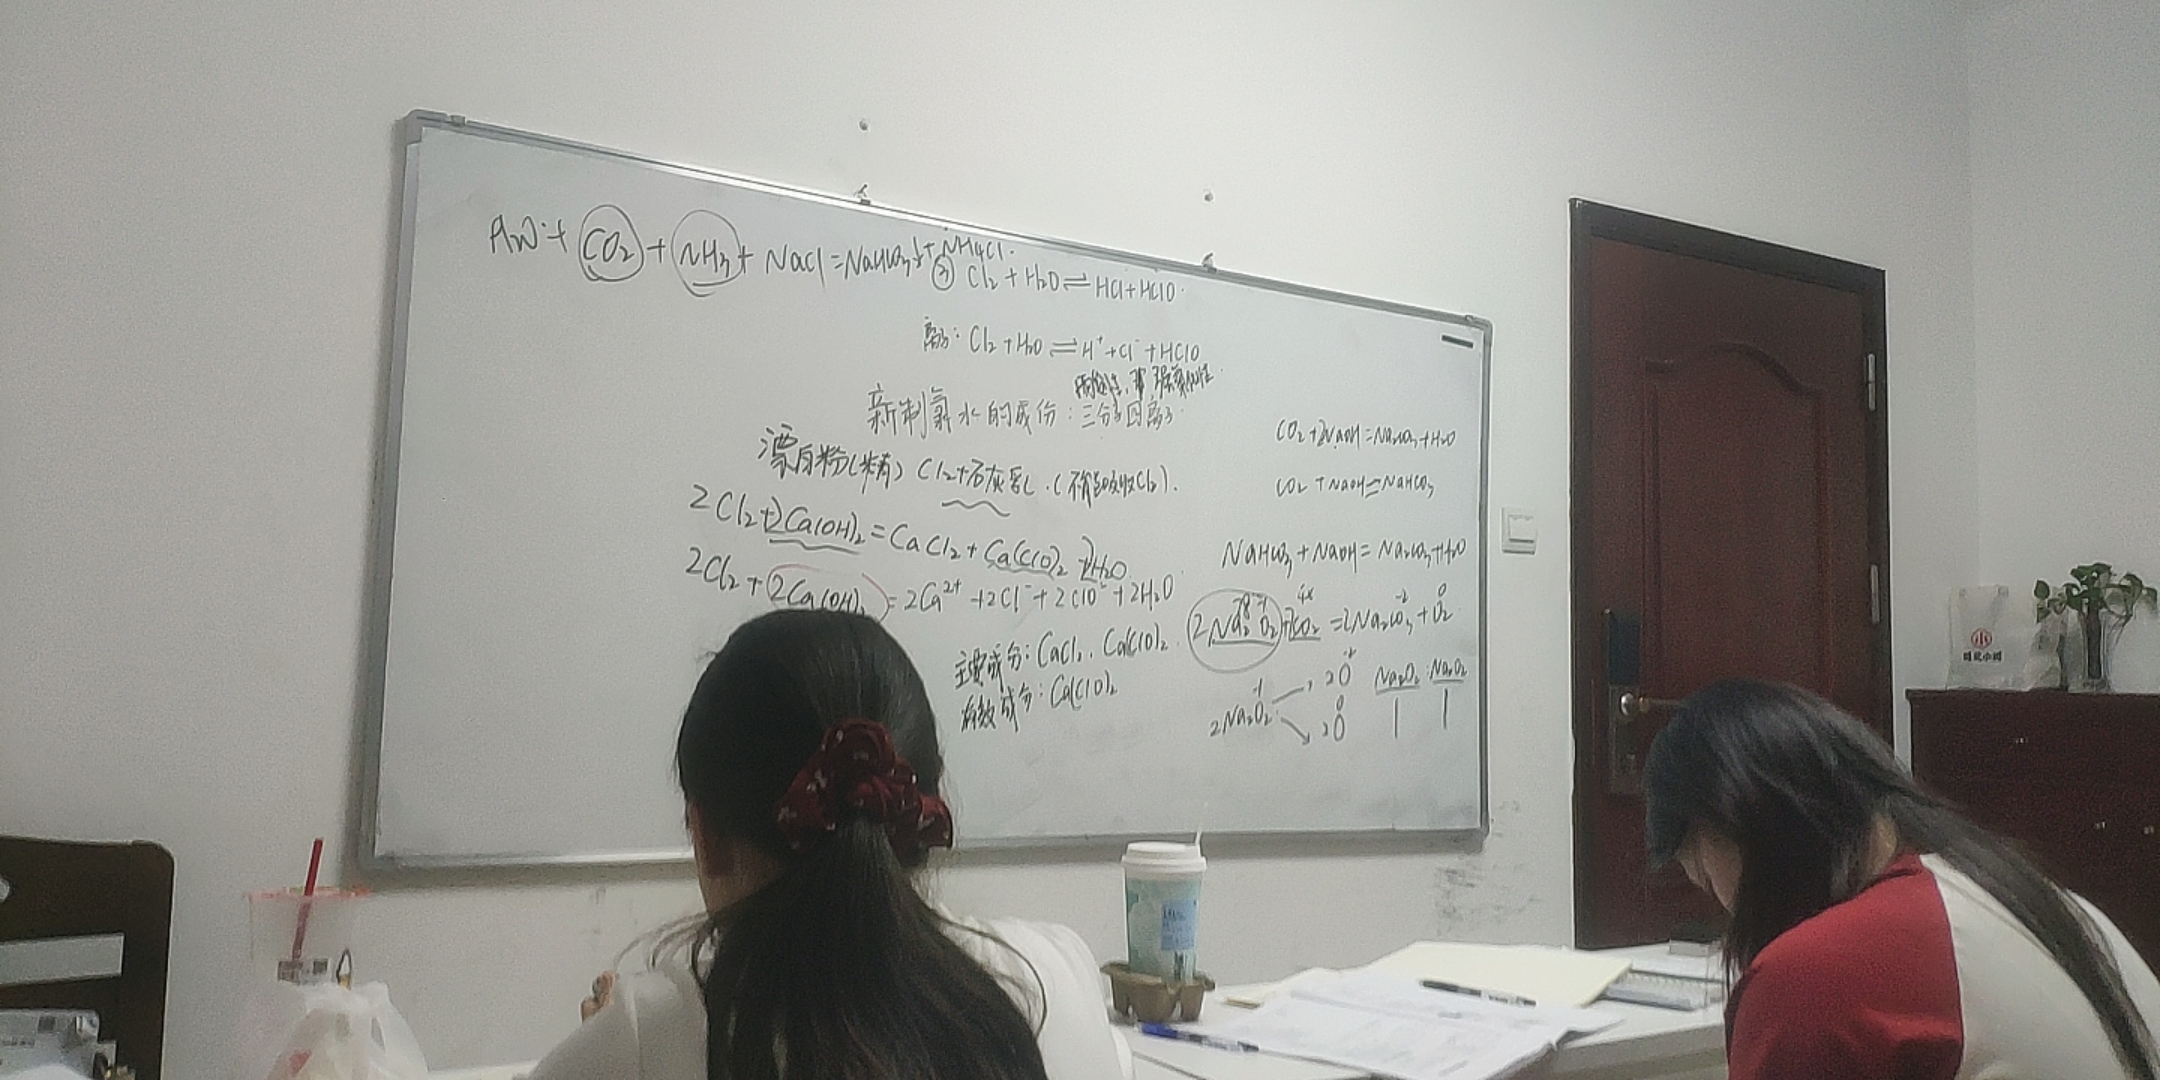 H₂O + CO₂ + NH₃ + NaCl = NaHCO₃↓ + NH₄Cl.
③ Cl₂ + H₂O ⇌ HCl + HClO.
离子: Cl₂ + H₂O ⇌ H⁺ + Cl⁻ + HClO
强氧化性.
新制氯水的成份: 三分子四离子.
漂白粉(精) Cl₂+石灰乳.(不能吸收Cl₂).
2Cl₂+2Ca(OH)₂ = CaCl₂ + Ca(ClO)₂ + 2H₂O
2Cl₂ + 2Ca(OH)₂ = 2Ca²⁺ + 2Cl⁻ + 2ClO⁻ + 2H₂O
主要成分: CaCl₂. Ca(ClO)₂.
有效成分: Ca(ClO)₂
CO₂ + 2NaOH = Na₂CO₃ + H₂O
CO₂ + NaOH = NaHCO₃
NaHCO₃ + NaOH = Na₂CO₃ + H₂O
2Na₂O₂ + 2CO₂ = 2Na₂CO₃ + O₂
-2
2O
Na₂O₂ : Na₂O₂
-1
2Na₂O₂
0
2O
1 1